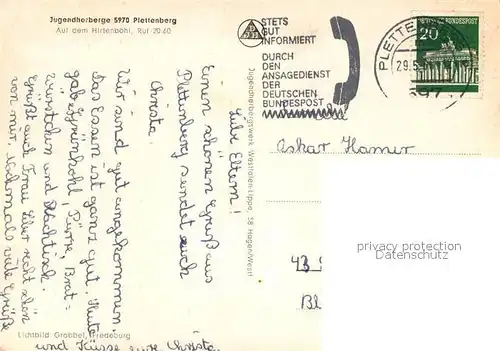 Jugendherberge 5970 Plettenberg
Auf dem Hirtenböhl, Ruf 20 40
STETS
GUT
INFORMIERT
DURCH
DEN
ANSAGEDIENST
DER
DEUTSCHEN
BUNDESPOST
PLETTE
29.5.
597
DEUTSCHE BUNDESPOST
20
Liebe Eltern!
Einen schönen Gruß aus
Plettenberg sendet euch
Christa.
Wir sind gut angekommen.
Das Essen ist ganz gut. Heute
gab es Grünkohl, Püree, Brat=
würstchen und Nachtisch.
Grüßt auch Frau recht schön
von mir. Nochmals viele Grüße
und Küsse eure Christa.
Jugendherbergswerk Westfalen-Lippe, 58 Hagen/Westf
Familie
Oskar Hamer
43
Bl
privacy protection
Datenschutz
Lichtbild Grobbel, Fredeburg